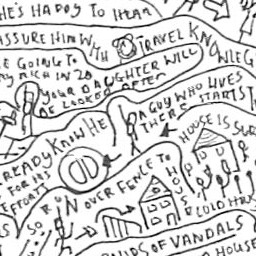 HE'S HAPPY TO HEAR
ASSURE HIM WHH
TRAVEL KNOWLEG
E GOING TO
RICH IN 20
YOUR DAUGHTER WILL
BE LOOKED AFTER
A GUY WHO LIVES
THERE STARTS
READY KNOW HE
FOR HIS
EFFORTS
HOUSE IS SUR
RUN OVER FENCE TO
HOUSE
COULD
SO
OF VANDALS
HOUSE